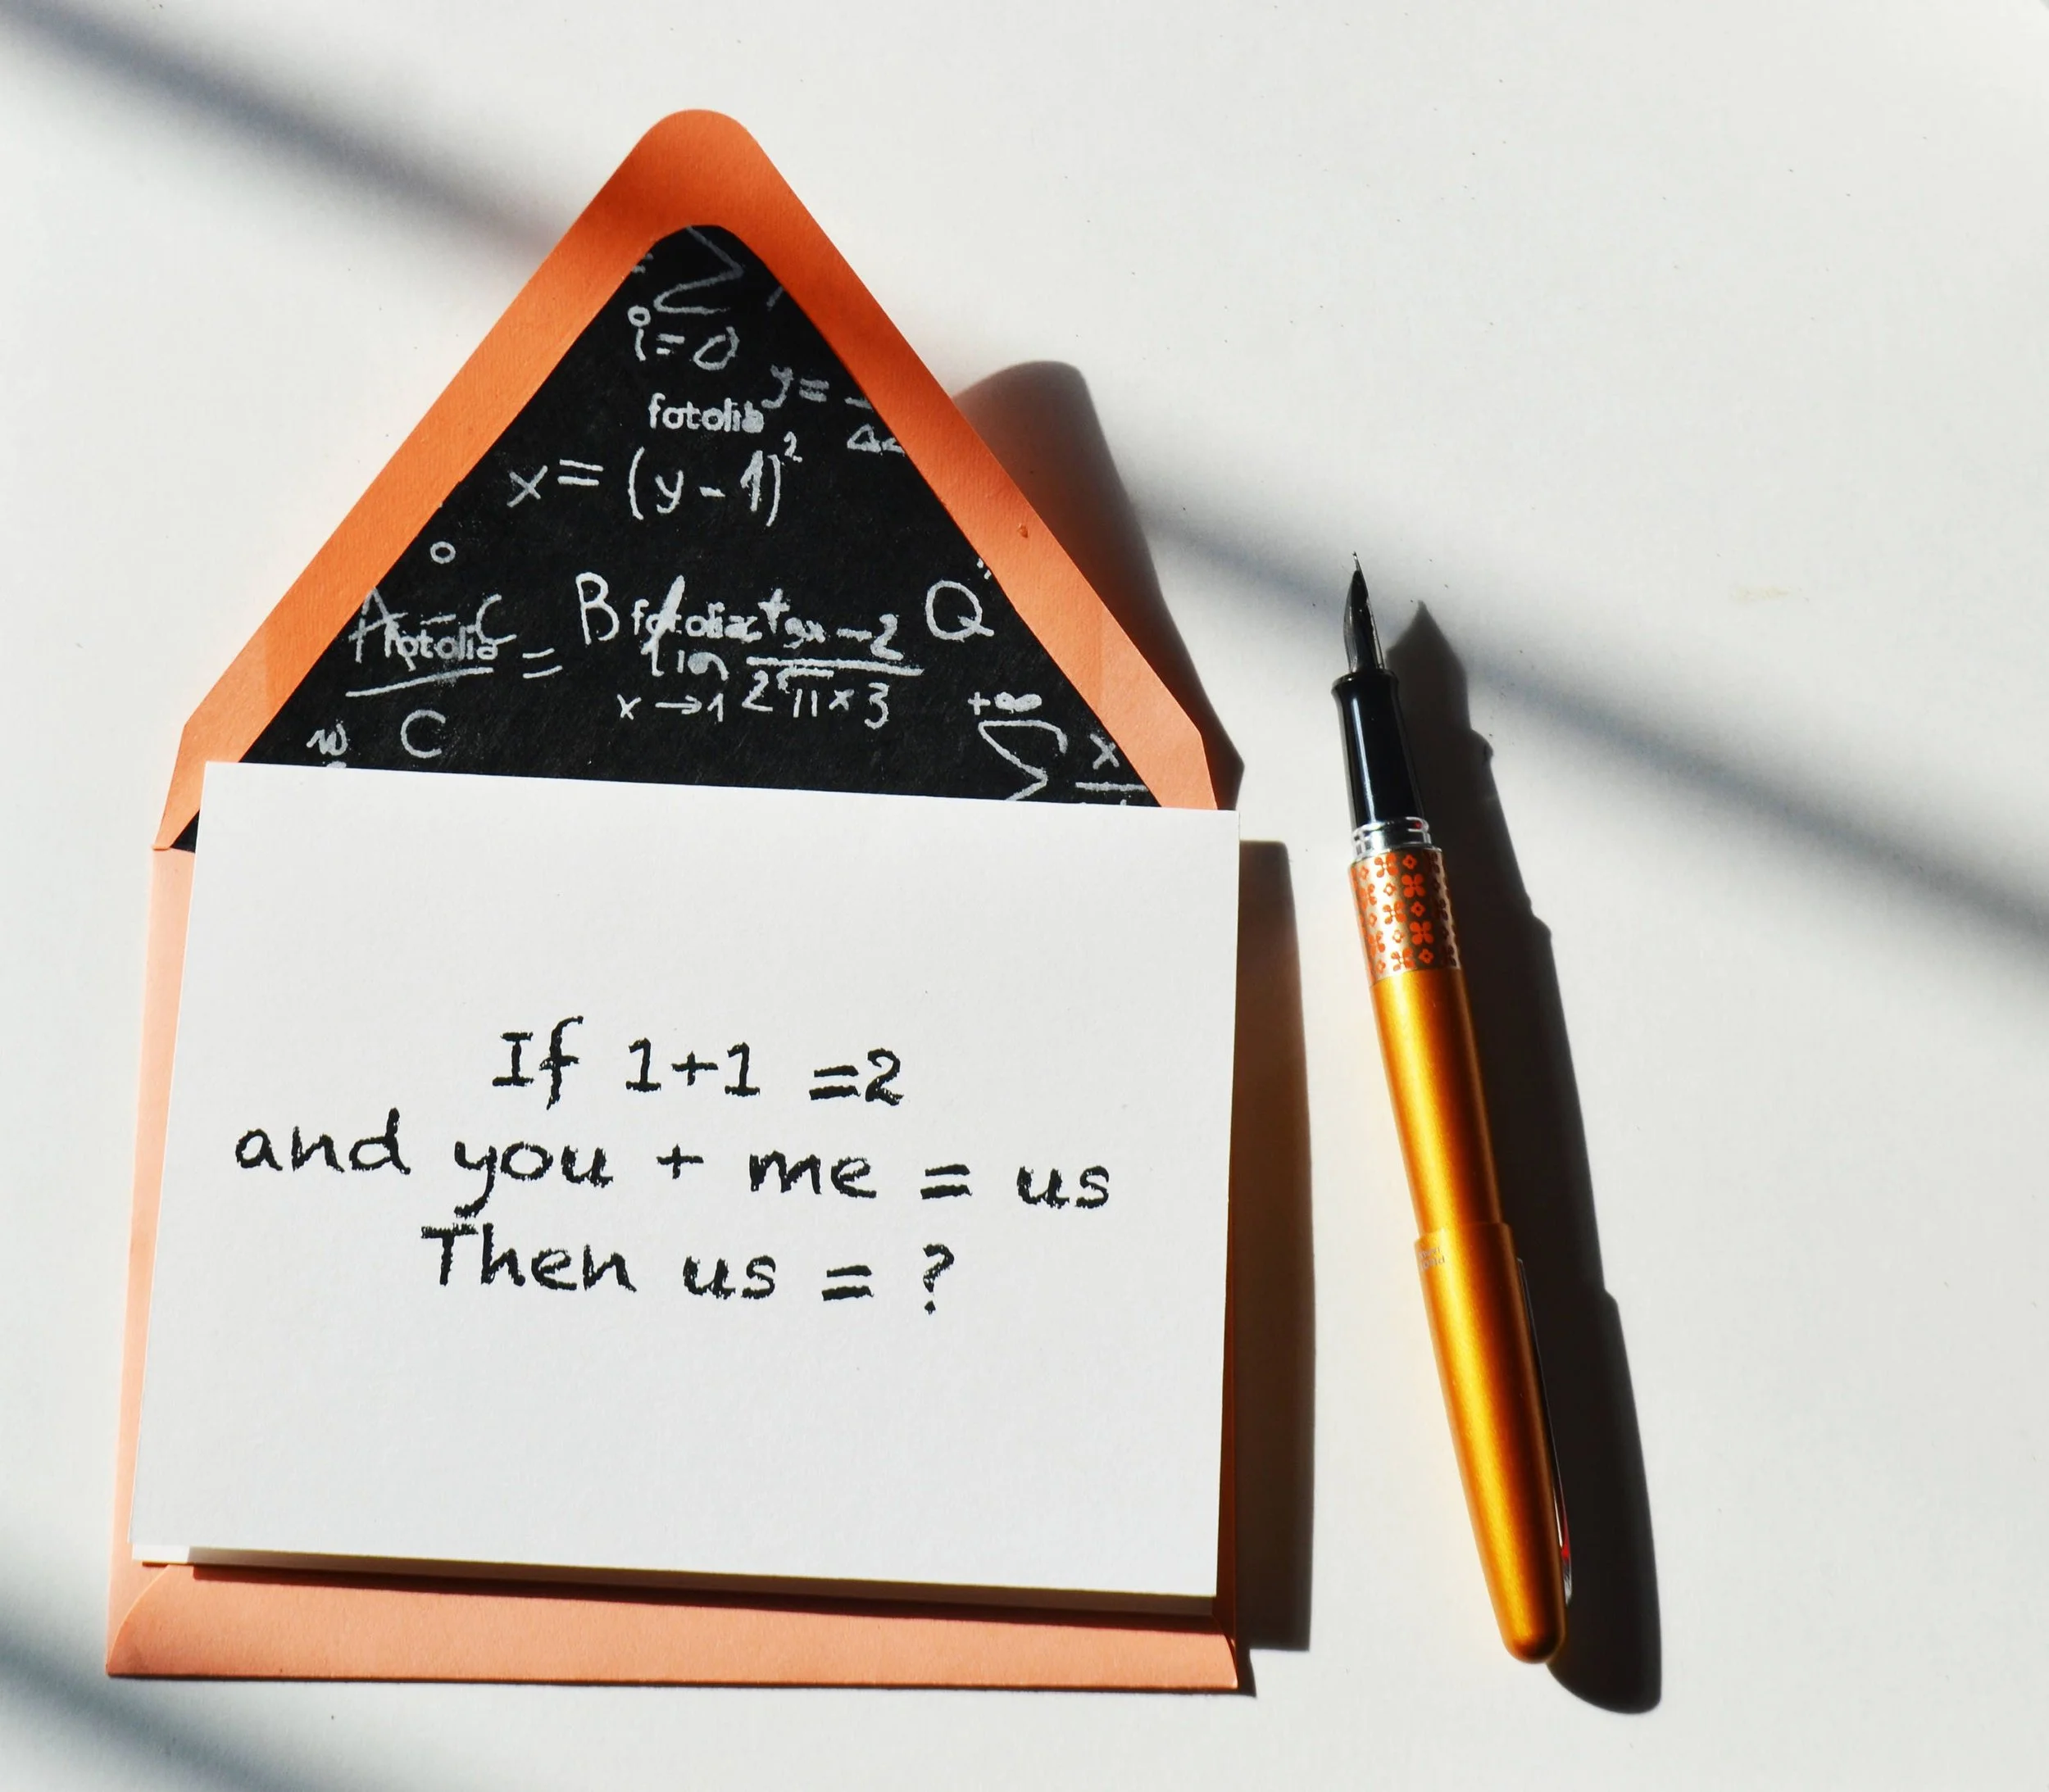 i=0
y=
fotolia
x = (y - 1)²
A - C
fotolia
=
B
fotolia
Q
lim
x→1
C
+∞
∑
x
If 1+1 =2
and you + me = us
Then us = ?